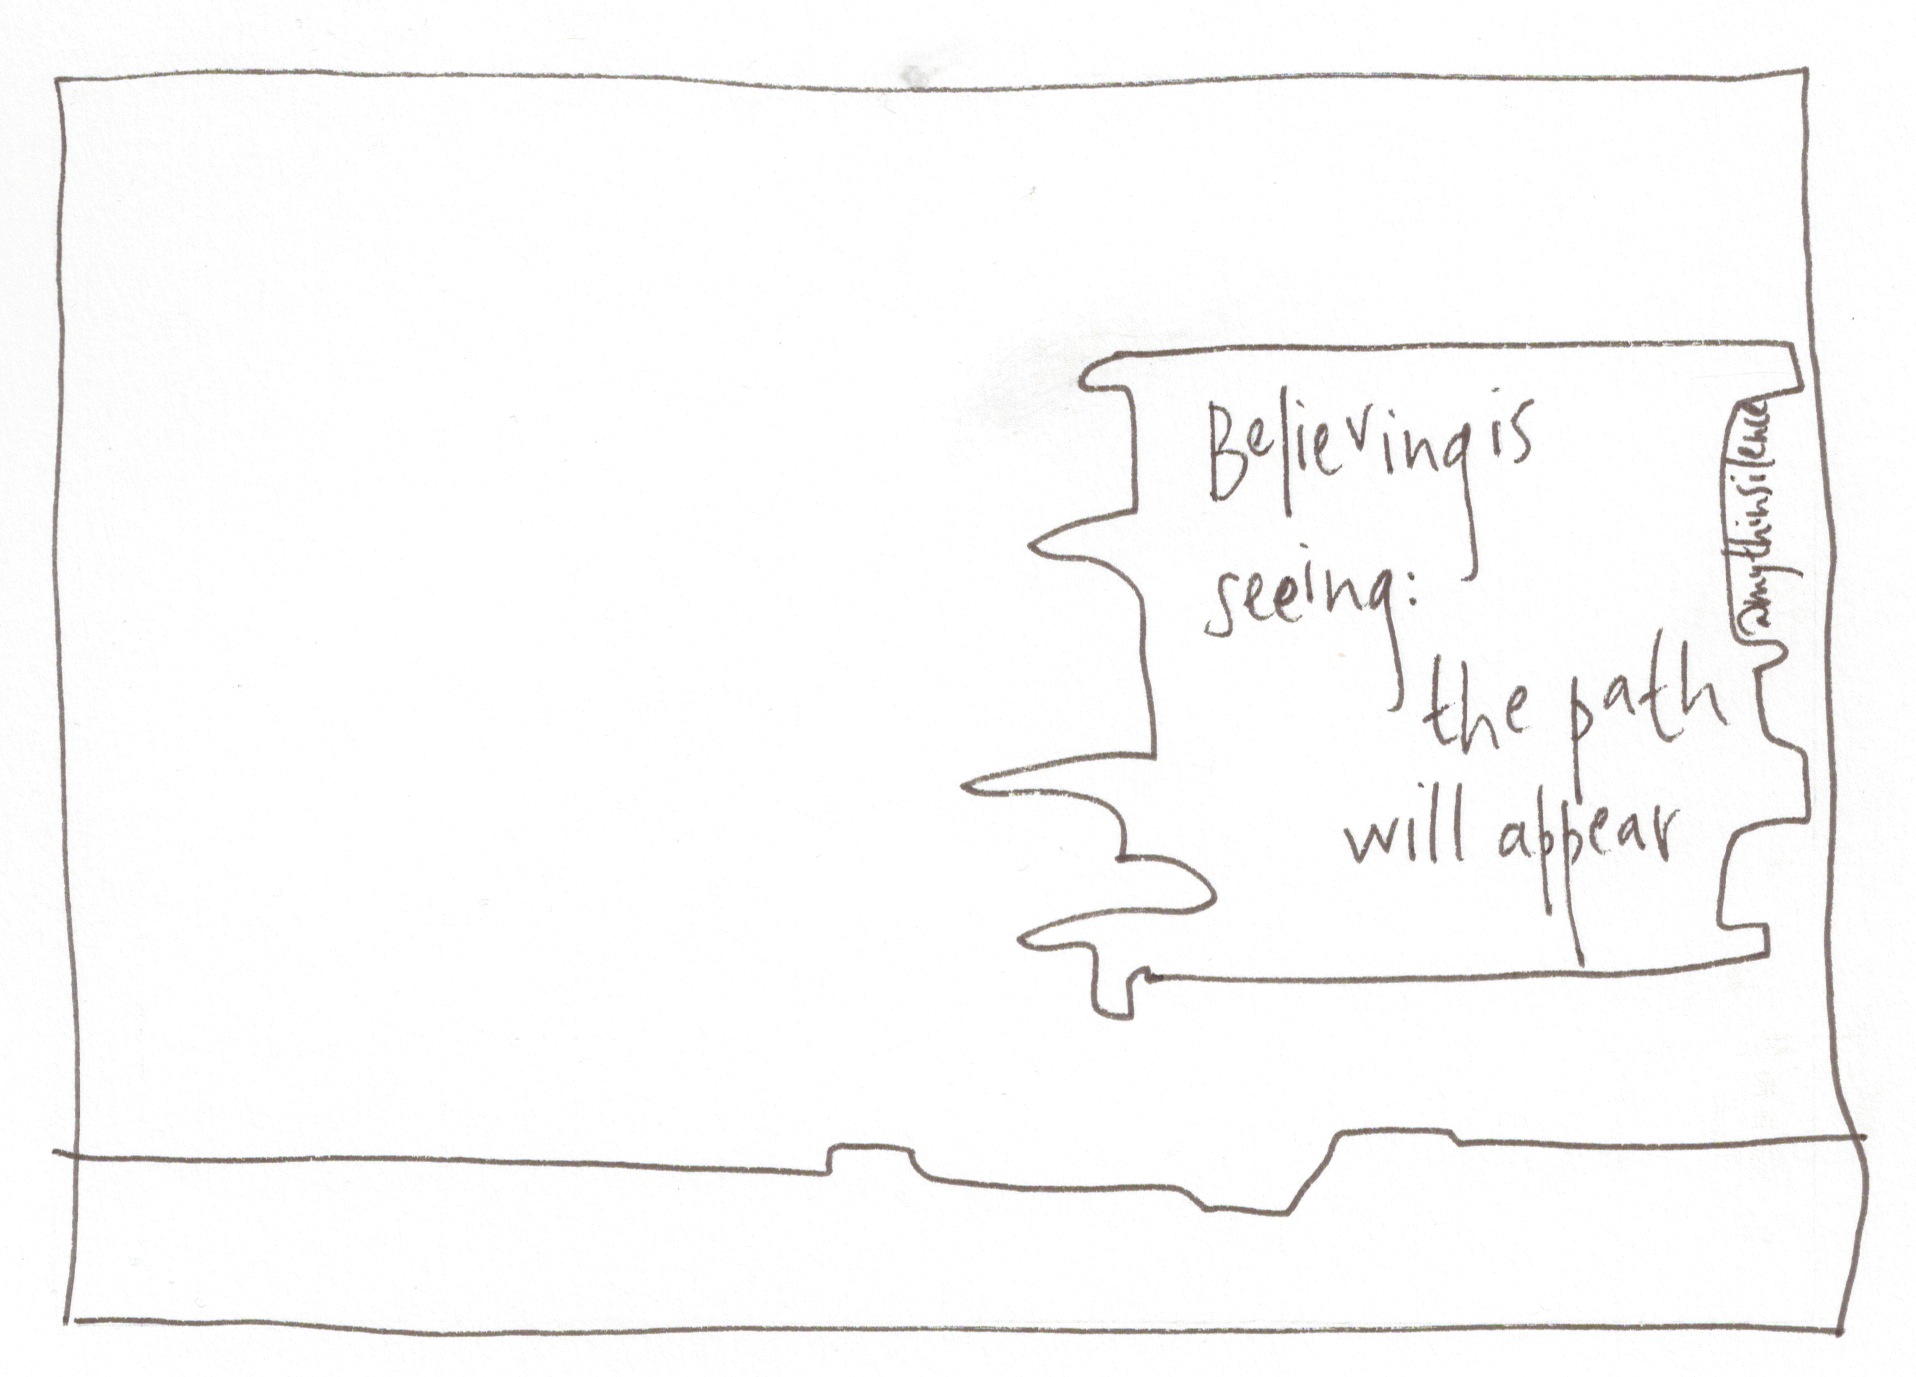 Believing is
seeing:
the path
will appear
amythinsilence